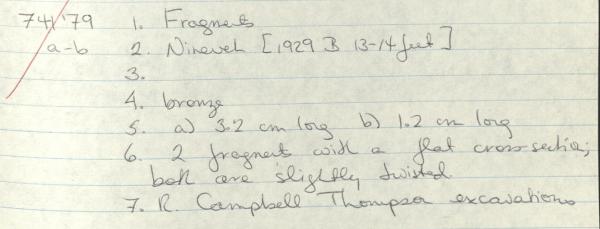 74/'79 1. Fragments
a-b 2. Nineveh [1929 B 13-14 feet]
3.
4. bronze
5. a) 3.2 cm long b) 1.2 cm long
6. 2 fragments with a flat cross-section;
both are slightly twisted
7. R. Campbell Thompson excavations